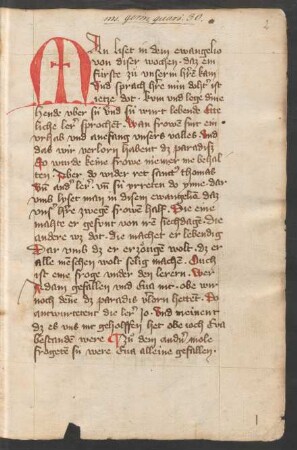 ms. germ. quart. 30.
MAn liset in dem ewangelio
von diser wochen · daz ein
fürste zü vnserm hrē kam
Vnd sprach hre min doht' ist
ietze dot · kvm vnd lege dine
hende vber sú vnd sú wurt lebende
liche ler sprochēt · Wan frowē sint ein
vrhab vnd anefang vnsers valles Vnd
das wir verlorn habent dz paradisz
So wurde keine frowe niemer me behal
ten · Aber do wider ret sant thomas
Vn̄ and' ler' vn̄ sú vrreten do
vmb lyset man in disem ewangeliū daz
vns' hre zwene frowē half Die eine
mahte er gesunt von ire siechdage · die
andere wz dot · die machet er lebendig
Dar vmb dz er erzöige wolt dz er
alle menschen wolt selig machē Ouch
ist eine froge vnder den lerern Wer
Adam gefallen vnd Eua nit · obe wir
noch denē dz paradis v'lorn hettēt · Do
antwurtetent die ler' Jo · Vnd meinent
dz es vns nit geholffen het obe ioch Eua
bestanden were Zü dem and'n mole
frogete sú were Eua alleine gefallen ·